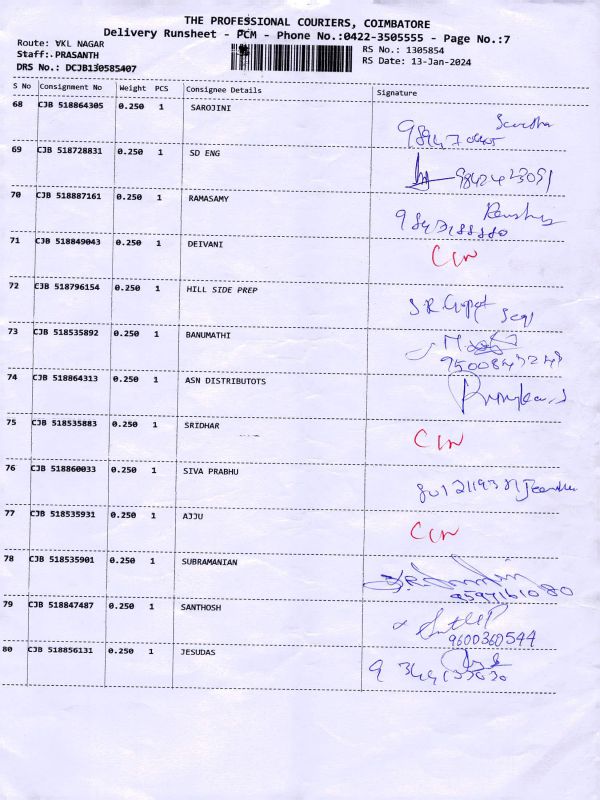 THE PROFESSIONAL COURIERS, COIMBATORE
Delivery Runsheet - PCM - Phone No.:0422-3505555 - Page No.:7
Route: VKL NAGAR
RS No.: 1305854
Staff: PRASANTH
RS Date: 13-Jan-2024
DRS No.: DCJB130585407
S No Consignment No Weight PCS Consignee Details Signature
68 CJB 518864305 0.250 1 SAROJINI
69 CJB 518728831 0.250 1 SD ENG
9842423091
70 CJB 518887161 0.250 1 RAMASAMY
71 CJB 518849043 0.250 1 DEIVANI
72 CJB 518796154 0.250 1 HILL SIDE PREP
73 CJB 518535892 0.250 1 BANUMATHI
74 CJB 518864313 0.250 1 ASN DISTRIBUTOTS
75 CJB 518535883 0.250 1 SRIDHAR
76 CJB 518860033 0.250 1 SIVA PRABHU
77 CJB 518535931 0.250 1 AJJU
78 CJB 518535901 0.250 1 SUBRAMANIAN
9597161080
79 CJB 518847487 0.250 1 SANTHOSH
9600360544
80 CJB 518856131 0.250 1 JESUDAS